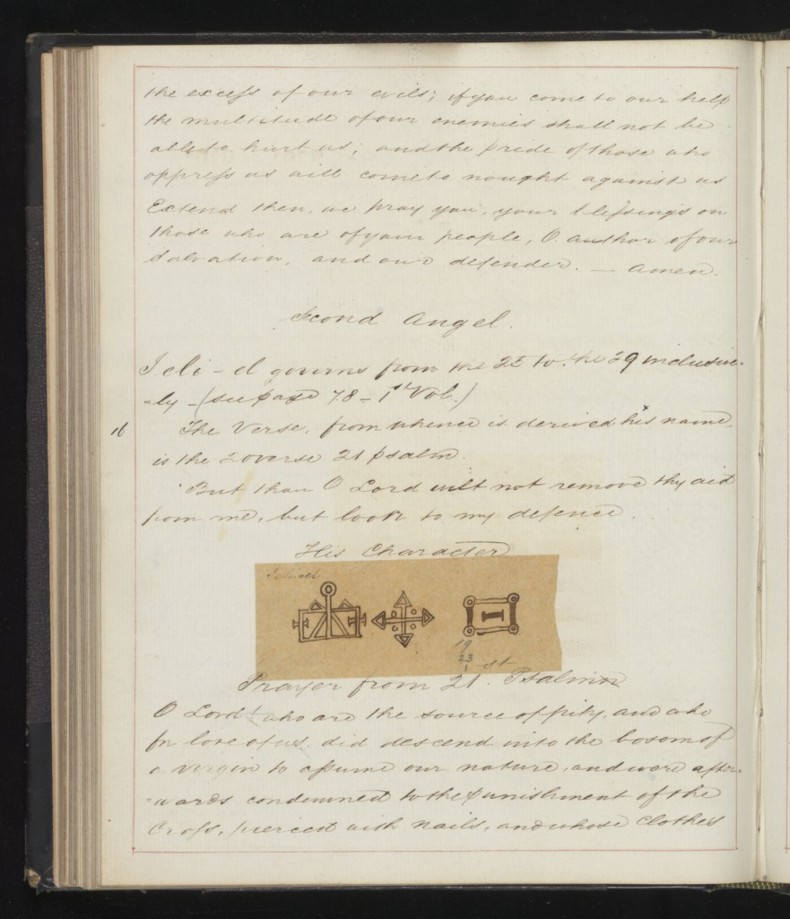 the excess of our evils; if you come to our help
the multitude of our enemies shall not be
able to hurt us; and the pride of those who
oppress us will come to nought against us
Extend then, we pray you, your blessings on
those who are of your people, O author of our
Salvation, and our defender. — Amen.
Second Angel.
Jeli-el governs from the 25 to the 29 inclusive-
-ly - (see page 78 - 1st Vol.)
16
The Verse, from whence is derived his name,
is the 20 verse 21 psalm.
"But thou O Lord wilt not remove thy aid
from me, but look to my defence.
His Character
Jeliael
19
23
1
Prayer from 21st Psalm
O Lord! who are the source of pity, and who
for love of us did descend into the bosom of
a virgin to assume our nature, and were after-
-wards condemned to the punishment of the
Cross, pierced with nails, and whose clothes